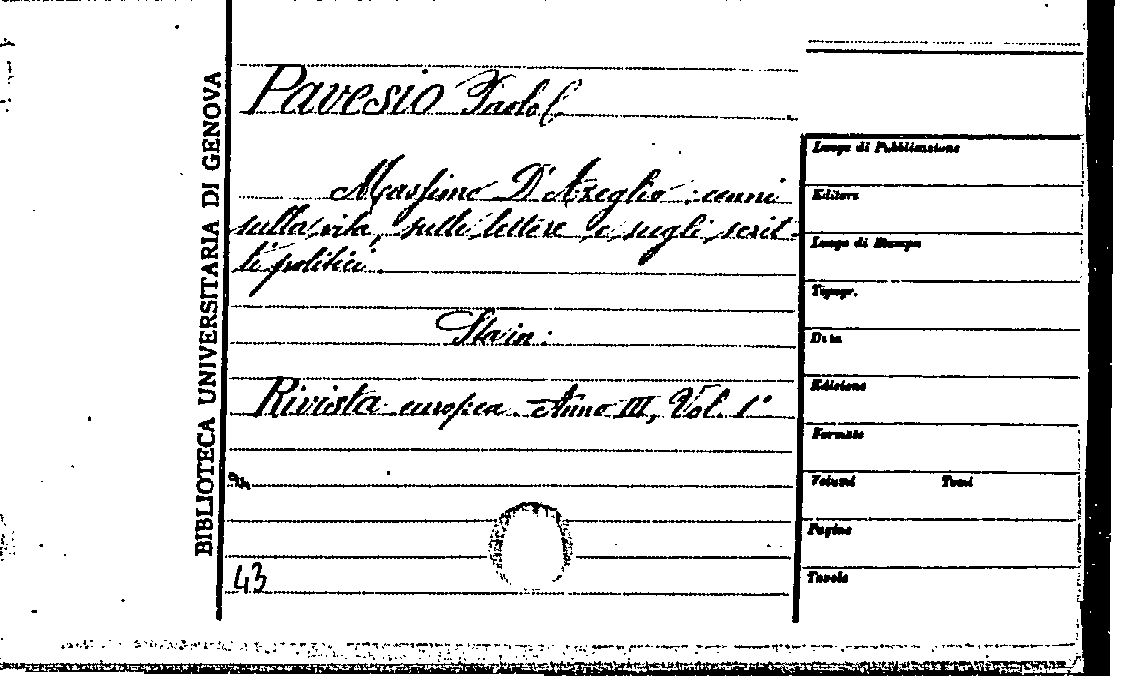 BIBLIOTECA UNIVERSITARIA DI GENOVA
Pavesio Paolo C.
Massimo D'Azeglio: cenni
sulla vita, sulle lettere e sugli scrit-
ti politici.
Sta in:
Rivista europea. Anno III, Vol. 1°
43
Luogo di Pubblicazione
Editore
Luogo di Stampa
Topogr.
Data
Edizione
Formato
Volumi Tomi
Pagine
Tavole